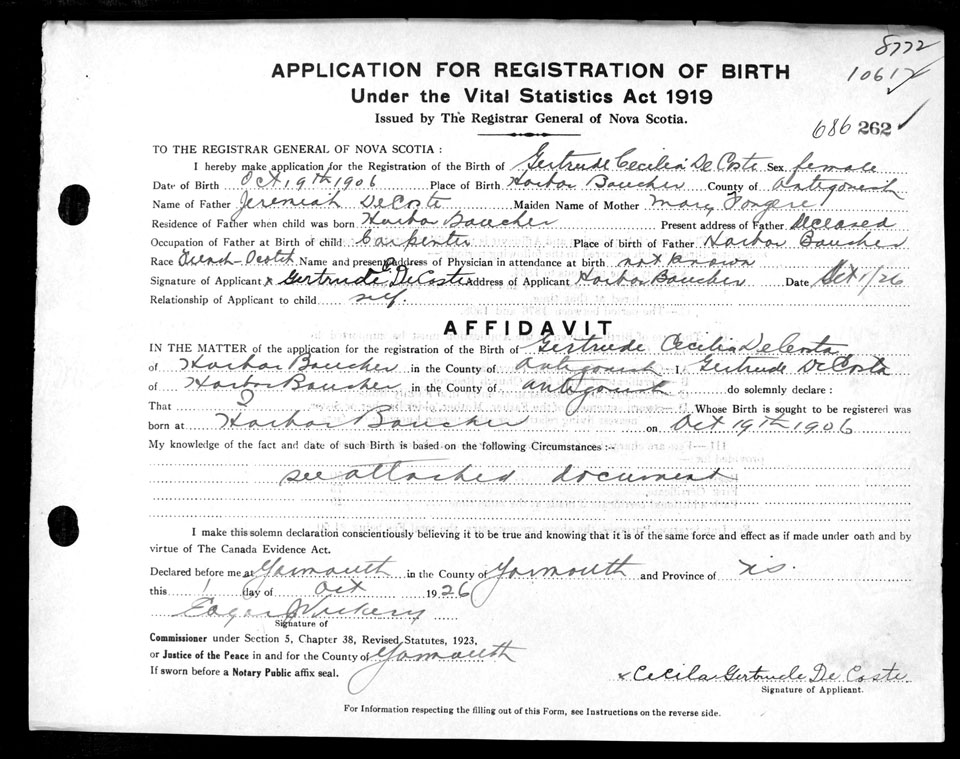 8772
10612
APPLICATION FOR REGISTRATION OF BIRTH
Under the Vital Statistics Act 1919
Issued by The Registrar General of Nova Scotia.
686 262
TO THE REGISTRAR GENERAL OF NOVA SCOTIA :
I hereby make application for the Registration of the Birth of Gertrude Cecilia De Coste Sex female
Date of Birth Oct 19th 1906 Place of Birth Harbor Baucher County of Antigonish
Name of Father Jeremiah DeCoste Maiden Name of Mother Mary
Residence of Father when child was born Harbor Baucher Present address of Father deceased
Occupation of Father at Birth of child Carpenter Place of birth of Father Harbor Baucher
Race French-Scotch Name and present address of Physician in attendance at birth not known
Signature of Applicant x Gertrude C. DeCoste Address of Applicant Harbor Baucher Date Oct 1/26
Relationship of Applicant to child self.
AFFIDAVIT
IN THE MATTER of the application for the registration of the Birth of Gertrude Cecilia DeCosta
of Harbor Baucher in the County of Antigonish I, Gertrude DeCosta
of Harbor Baucher in the County of Antigonish do solemnly declare :
That I Whose Birth is sought to be registered was
born at Harbor Baucher on Oct 19th 1906
My knowledge of the fact and date of such Birth is based on the following Circumstances :-
see attached document
I make this solemn declaration conscientiously believing it to be true and knowing that it is of the same force and effect as if made under oath and by
virtue of The Canada Evidence Act.
Declared before me at Yarmouth in the County of Yarmouth and Province of N.S.
this 1 day of Oct 1926
Signature of
Commissioner under Section 5, Chapter 38, Revised Statutes, 1923,
or Justice of the Peace in and for the County of Yarmouth
If sworn before a Notary Public affix seal.
x Cecila Gertrude De Coste
Signature of Applicant.
For Information respecting the filling out of this Form, see Instructions on the reverse side.